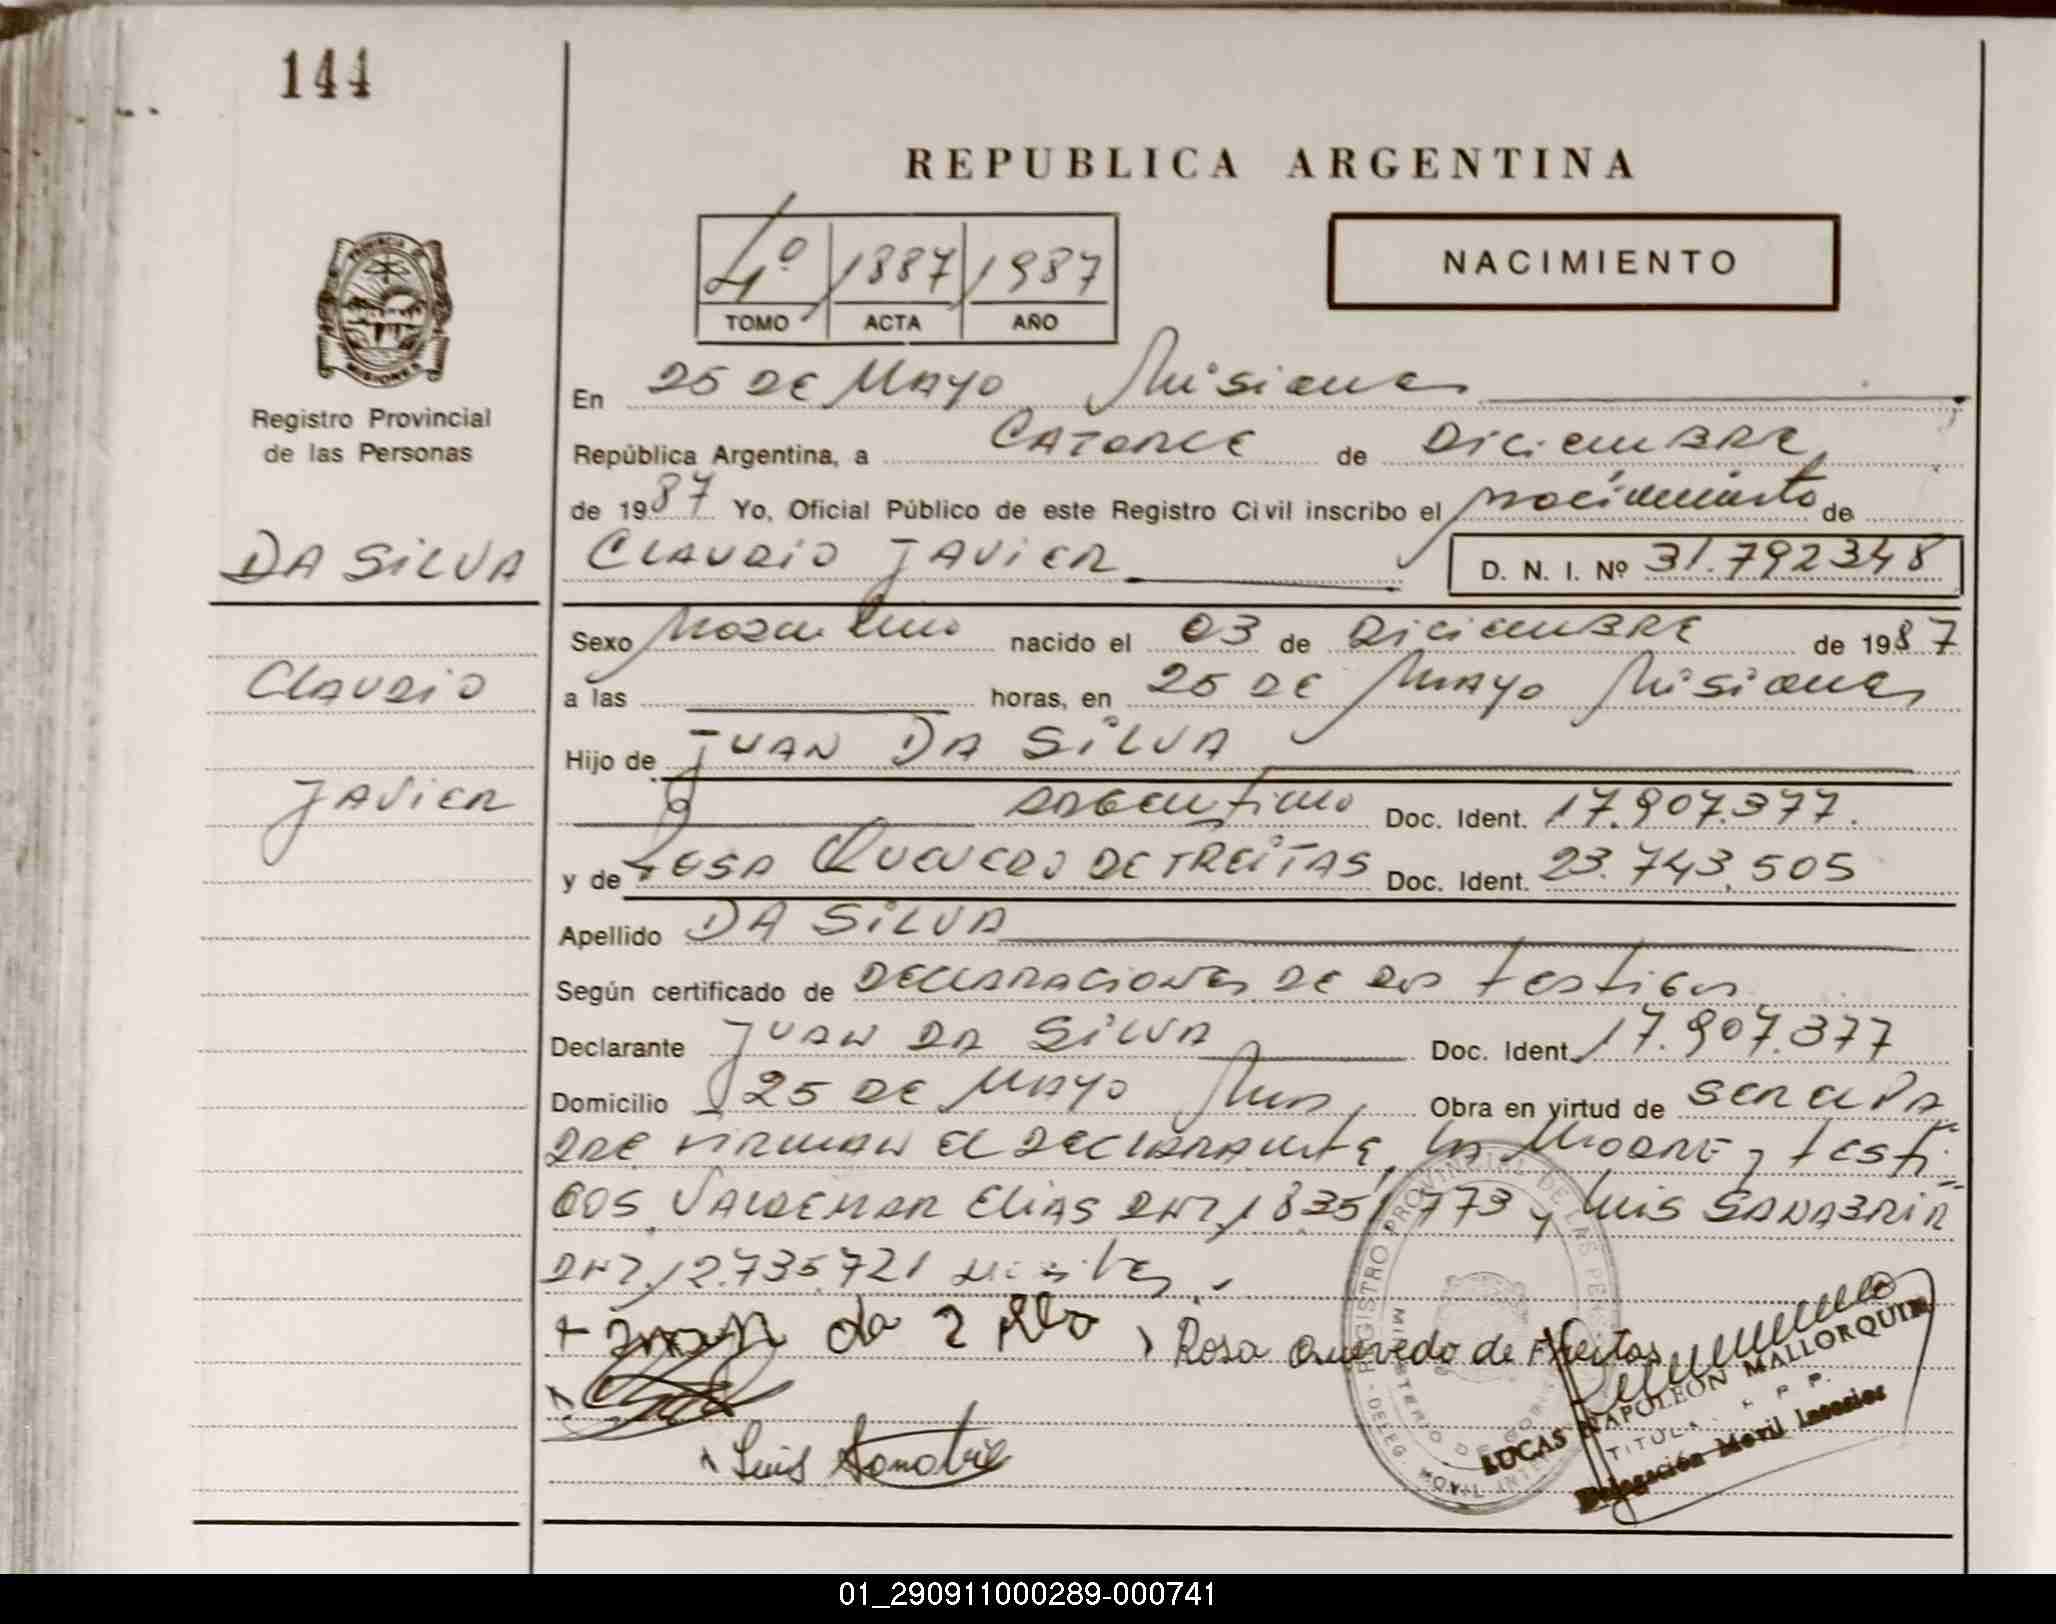 144
REPUBLICA ARGENTINA
4º 1887 1987
TOMO ACTA AÑO
NACIMIENTO
PROVINCIA DE MISIONES
Registro Provincial
de las Personas
DA SILVA
Claudio
Javier
En 25 DE MAYO Misiones
República Argentina, a CATORCE de Diciembre
de 1987 Yo, Oficial Público de este Registro Civil inscribo el nacimiento de
CLAUDIO JAVIER D. N. I. Nº 31.792348
Sexo Masculino nacido el 03 de Diciembre de 1987
a las horas, en 25 DE Mayo Misiones
Hijo de JUAN DA SILVA
argentino Doc. Ident. 17.907.377.
y de ROSA QUEVEDO DE FREITAS Doc. Ident. 23.743.505
Apellido DA SILVA
Según certificado de DECLARACIONES DE DOS testigos
Declarante JUAN DA SILVA Doc. Ident. 17.907.377
Domicilio 25 DE MAYO Mnes, Obra en virtud de SER EL PA
DRE FIRMAN EL DECLARANTE, LA MADRE y testi
GOS VALDEMAR ELIAS DNI 18351773 y LUIS SANABRIA
DNI 12.735.721
da
Rosa Quevedo de Freitas
Luis
REGISTRO PROVINCIAL DE LAS PERSONAS
MINISTERIO DE GOBIERNO
DELEG. MOVIL INTERIOR
LUCAS NAPOLEON MALLORQUIN
TITULAR R P P.
Delegación Movil Interior
01_290911000289-000741